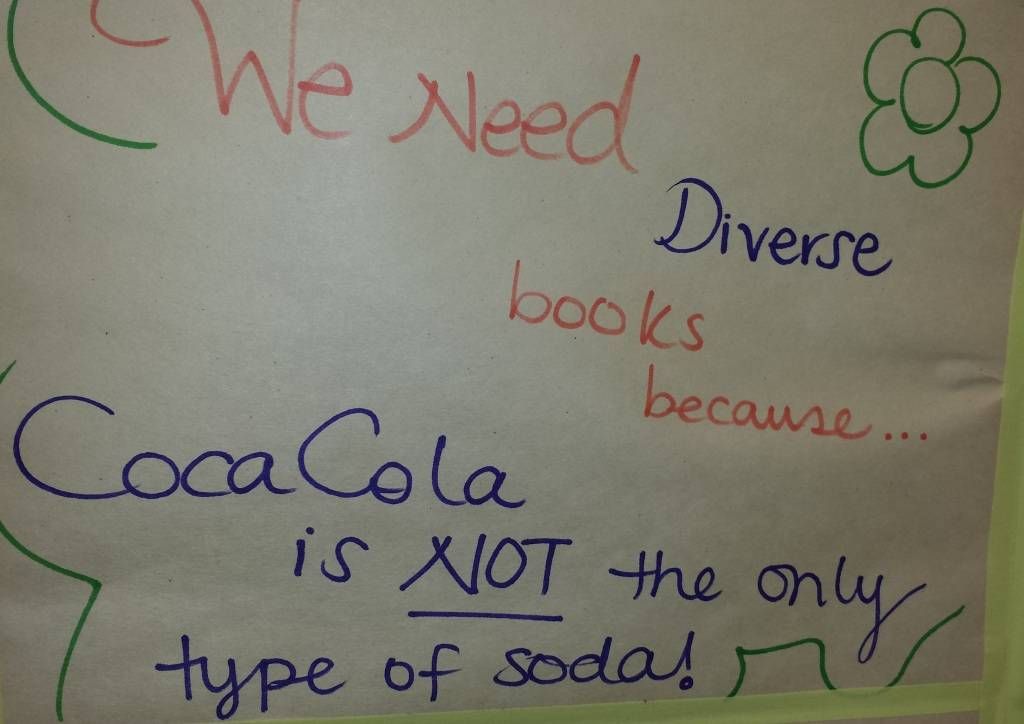 We Need
Diverse
books
because...
CocaCola
is NOT the only
type of soda!